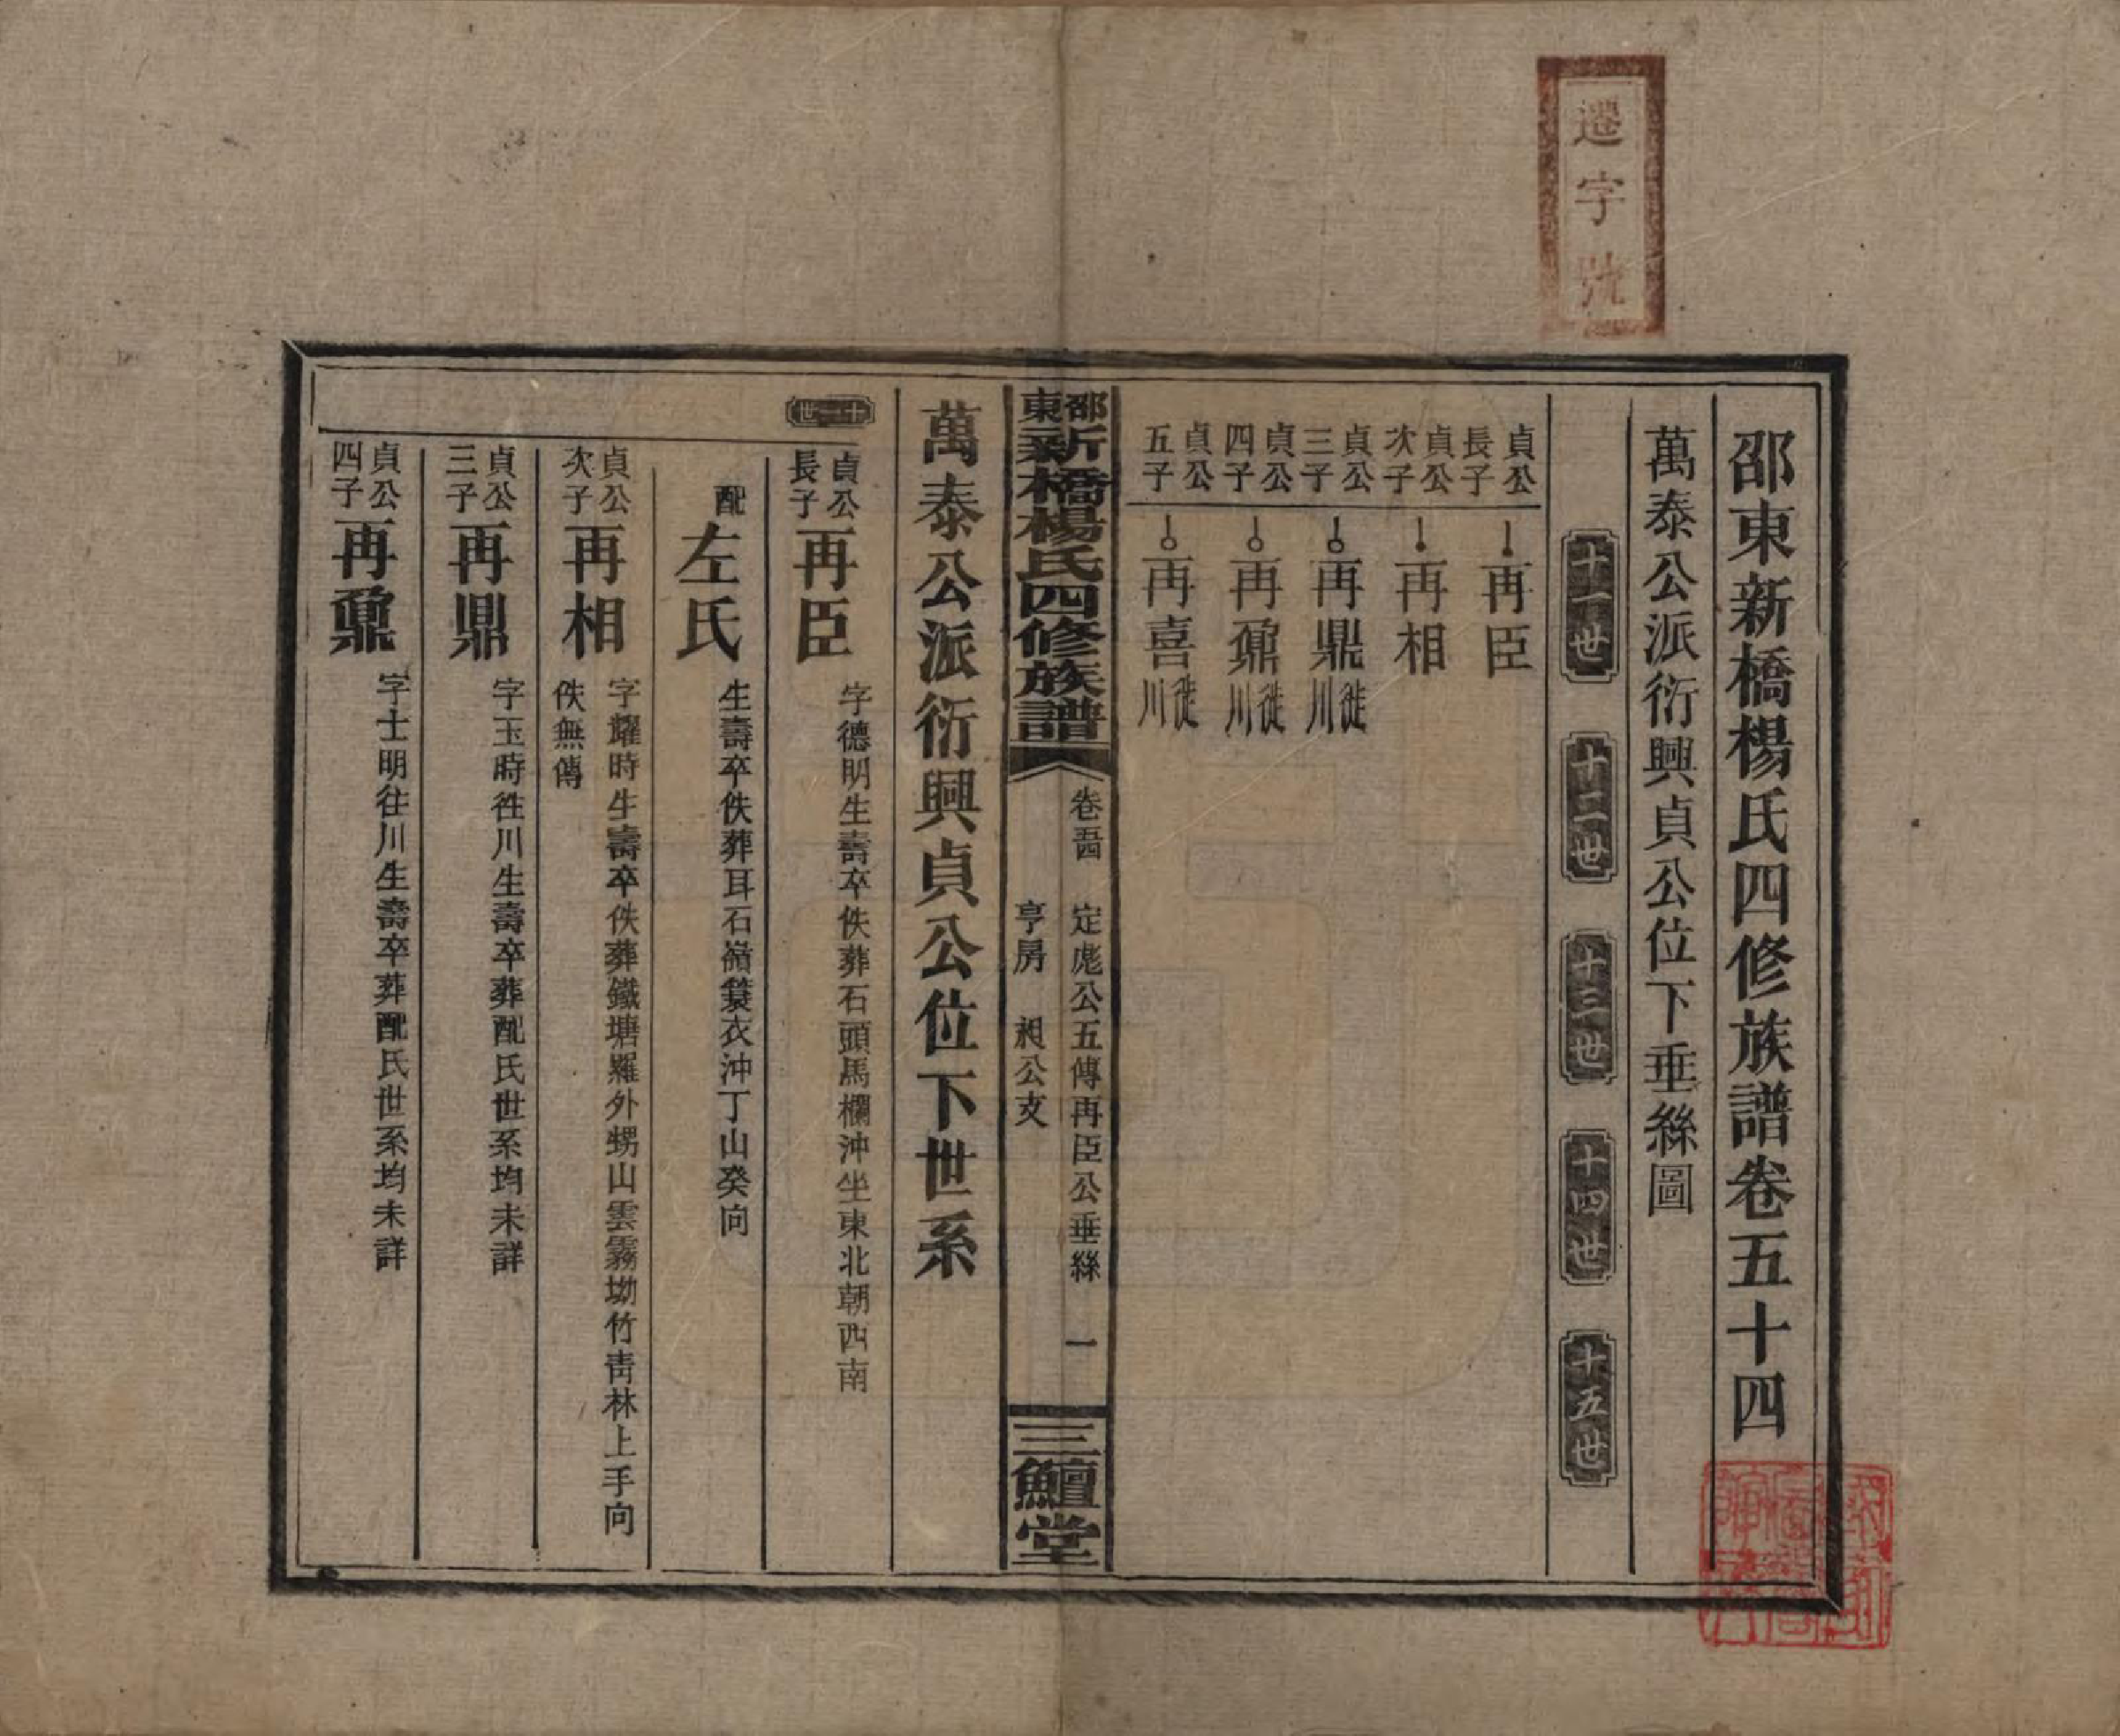 邵東新橋楊氏四修族譜卷五十四
萬泰公派衍興貞公位下垂絲圖
十一世 十二世 十三世 十四世 十五世
貞公長子 再臣
貞公次子 再相
貞公三子 再鼎 徙川
貞公四子 再鼐 徙川
貞公五子 再喜 徙川
邵東新橋楊氏四修族譜 卷五四 定彪公五傳再臣公垂絲 一
亨房 昶公支
三鱣堂
萬泰公派衍興貞公位下世系
十一世
貞公長子再臣 字德明生壽卒佚葬石頭馬欄沖坐東北朝西南
配左氏 生壽卒佚葬耳石嶺簑衣沖丁山癸向
貞公次子再相 字耀時生壽卒佚葬鐵塘羅外甥山雲霧坳竹青林上手向
佚無傳
貞公三子再鼎 字玉時徃川生壽卒葬配氏世系均未詳
貞公四子再鼐 字士明往川生壽卒葬配氏世系均未詳
遷字號